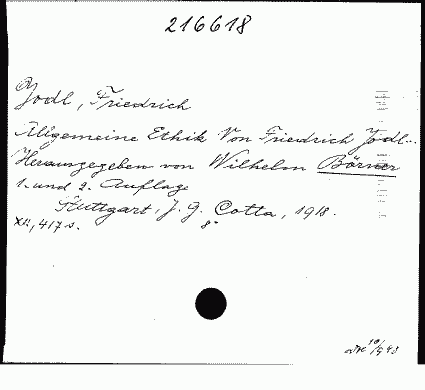 216618
Jodl, Friedrich
Allgemeine Ethik Von Friedrich Jodl...
Herausgegeben von Wilhelm Börner
1. und 2. Auflage
Stuttgart, J. G. Cotta, 1918.
XII, 417 S. 8°